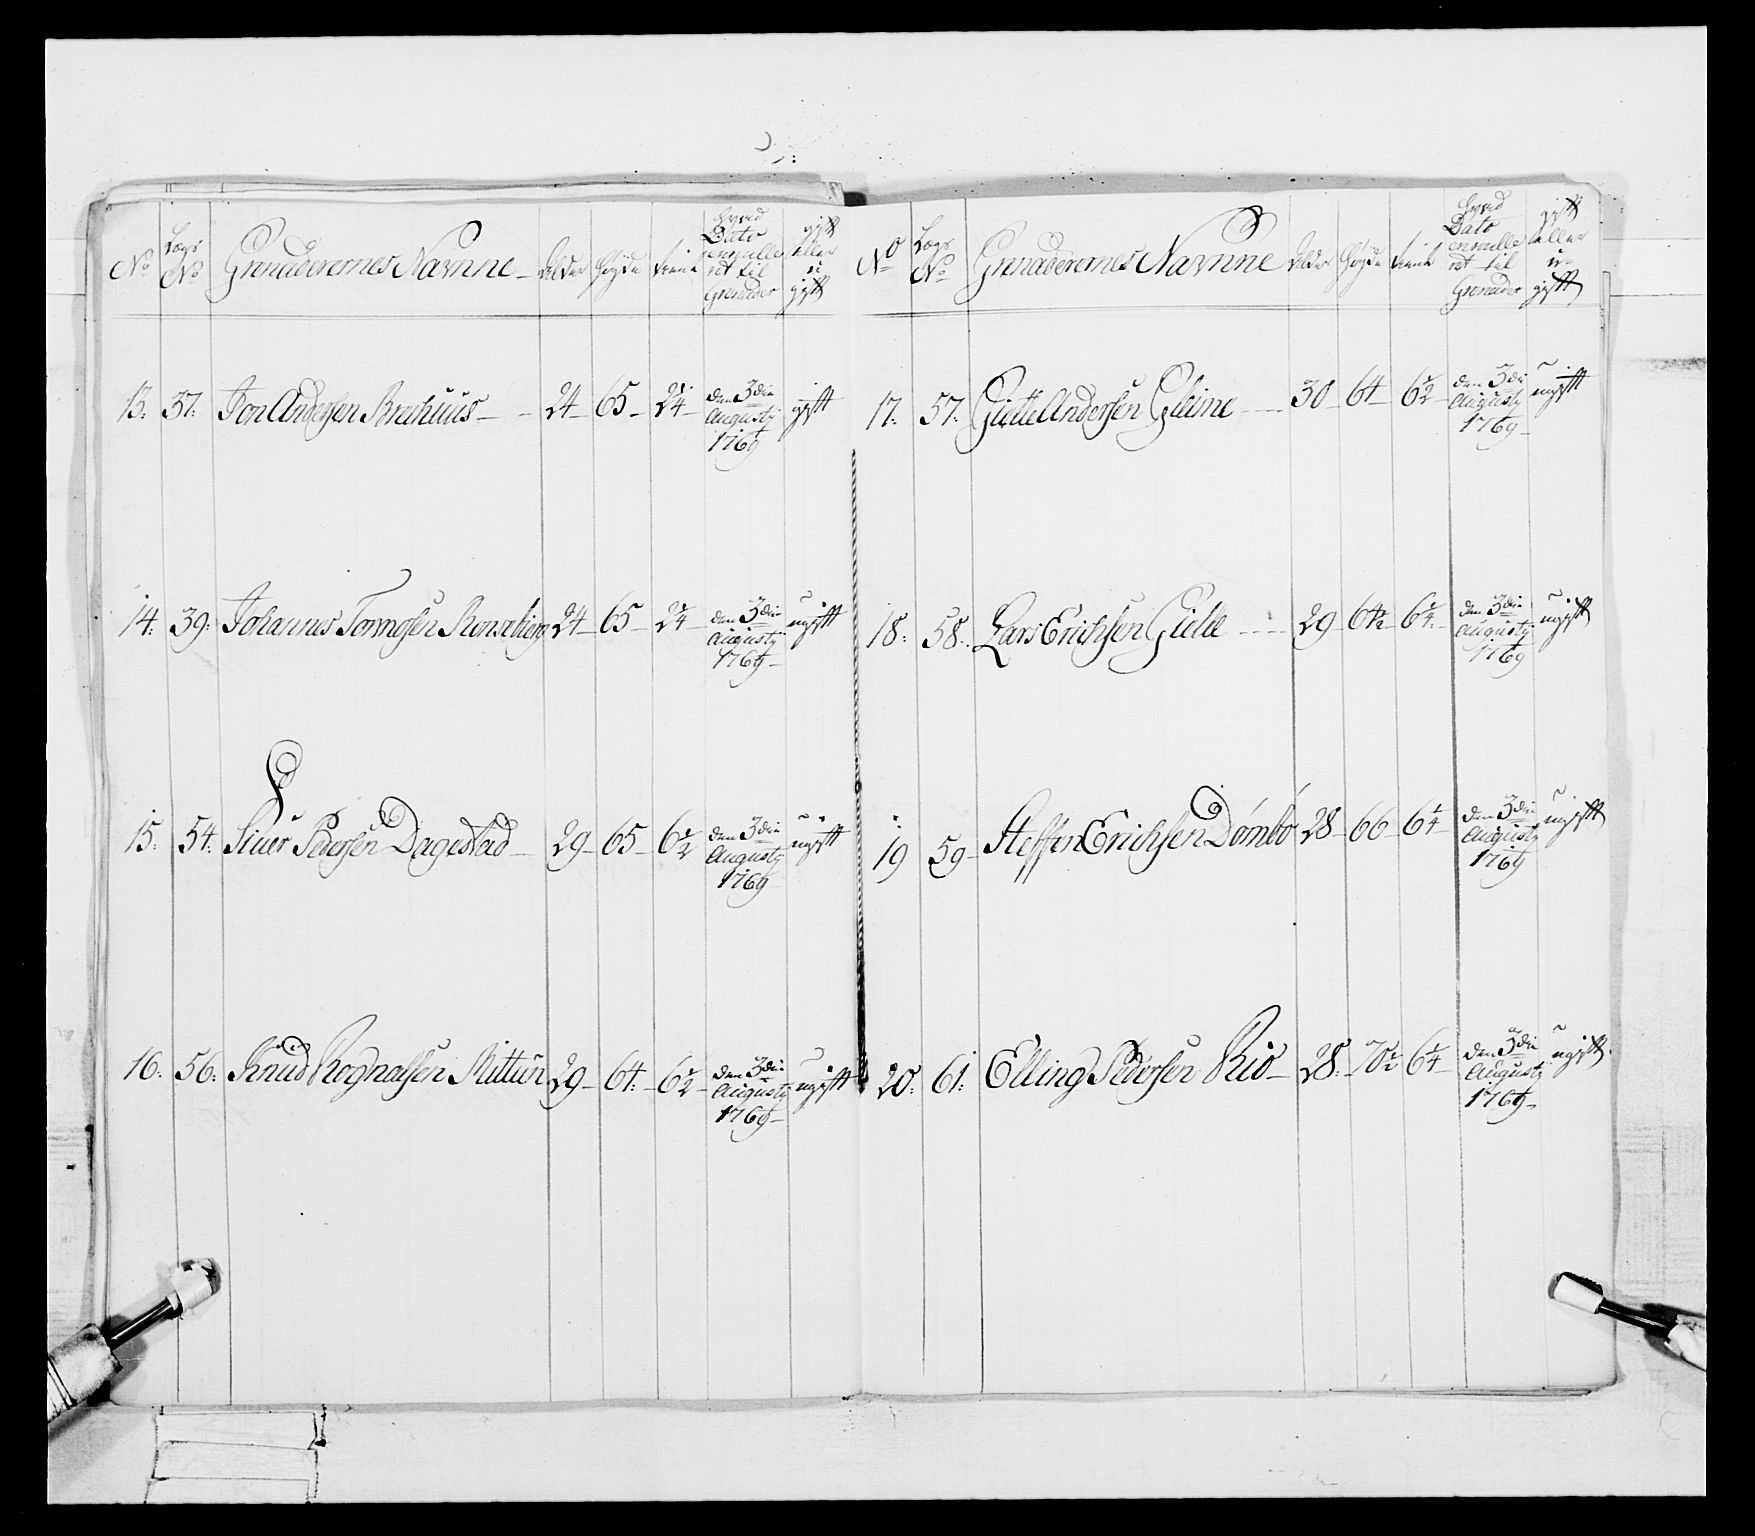 No Lægs No Grenaderernes Navnne Alder Høyde tient hvad Dato enroulleret til Grenader gift eller ugift
13: 37: Jon Andersen Brechuus 24 65 2¼ den 3die Augusty 1769 gift
14: 39: Johannes Tormosen 24 65 2¼ den 3die Augusty 1769 ugift
15: 54: Siuer Pedersen Dagestad 29 65 6½ den 3die Augusty 1769 ugift
16: 56: Knud Rognalsen Mittun 29 64: 6½ den 3die Augusty 1769 ugift
No Lægs No Grenaderernes Navnne Alder Høyde tient hvad Dato enroulleret til Grenader gift eller ugift
17: 57: Andersen Gleime 30 64 6½ den 3die Augusty 1769 ugift
18: 58: Lars Erichsen Gielle 29 64½ 6¼ den 3die Augusty 1769 ugift
19 59 Steffen Erichsen Dømbo 28 66 6¼ den 3die Augusty 1769 ugift
20: 61: Elling Pedersen Rio 28: 70½ 6¼ den 3die Augusty 1769 ugift